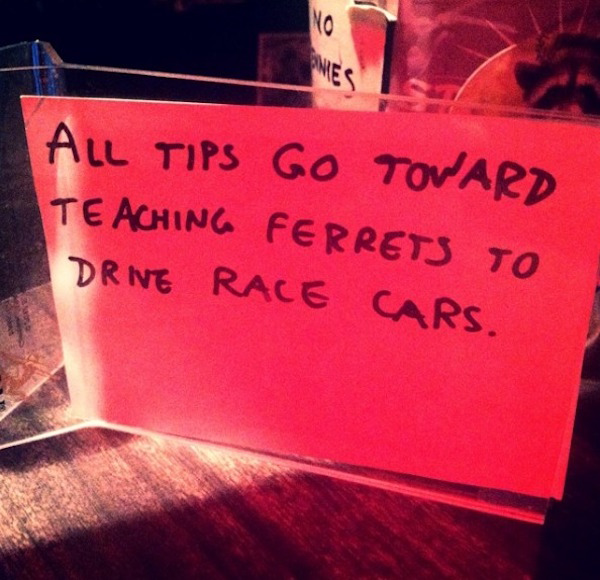 NO
ALL TIPS GO TOWARD
TEACHING FERRETS TO
DRIVE RACE CARS.